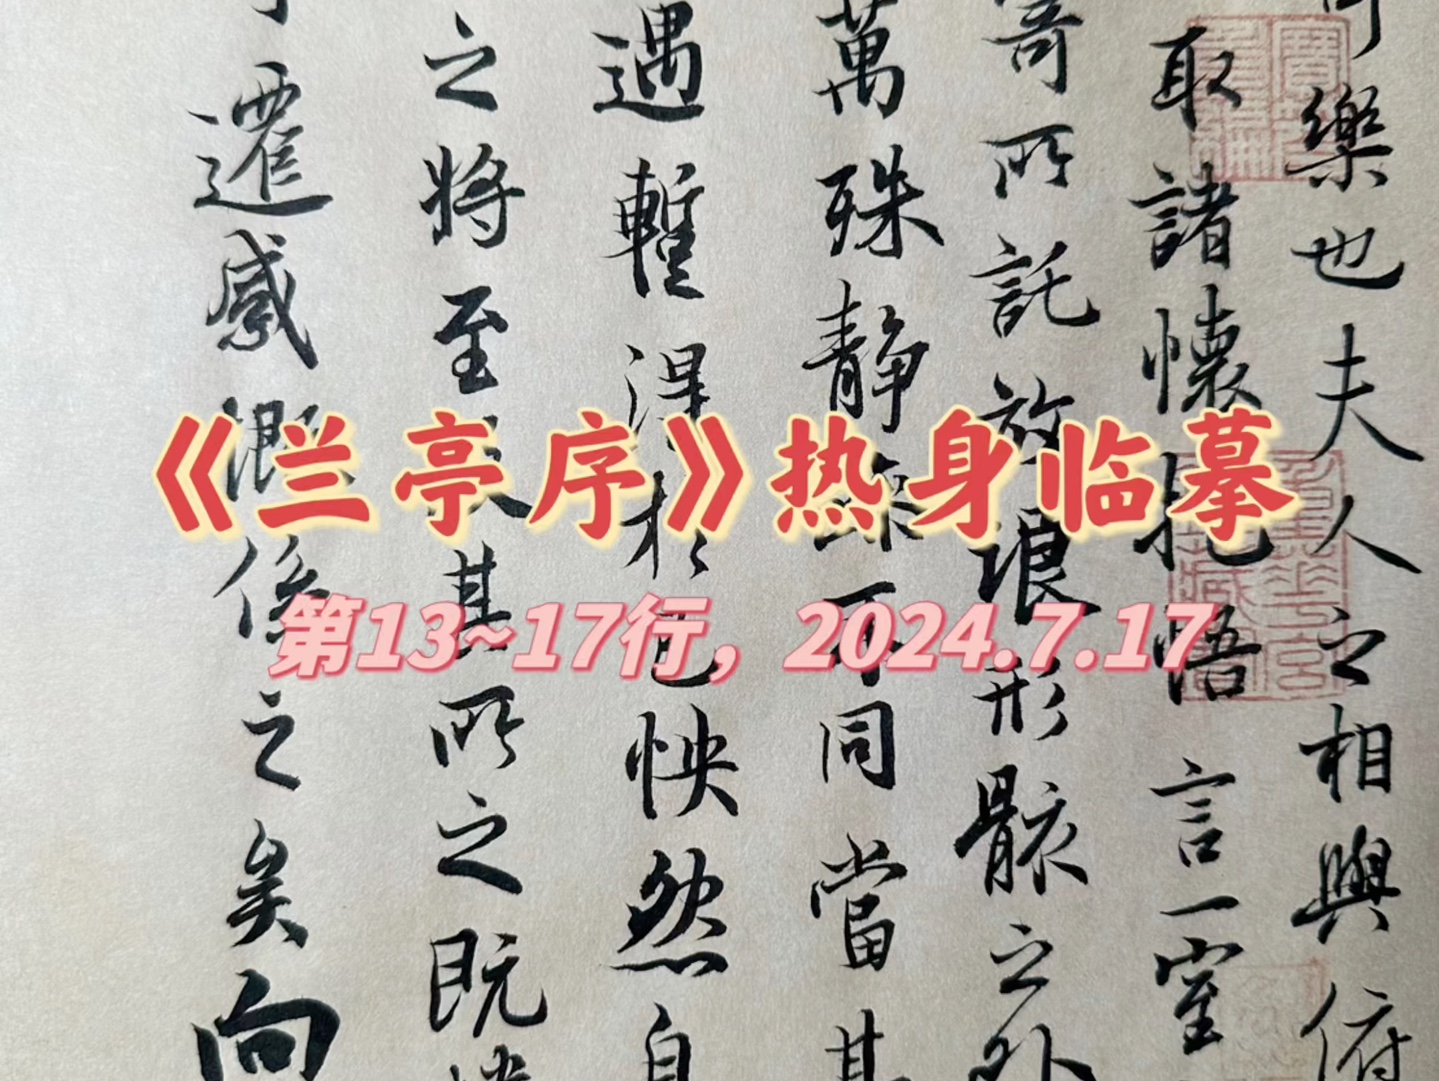 《兰亭序》热身临摹
第13~17行，2024.7.17
樂也夫人之相與俯
取諸懷抱悟言一室
寄所託放浪形骸之外
萬殊静躁不同當其
遇蹔得於己怏然自
之將至及其所之既
遷感慨係之矣向